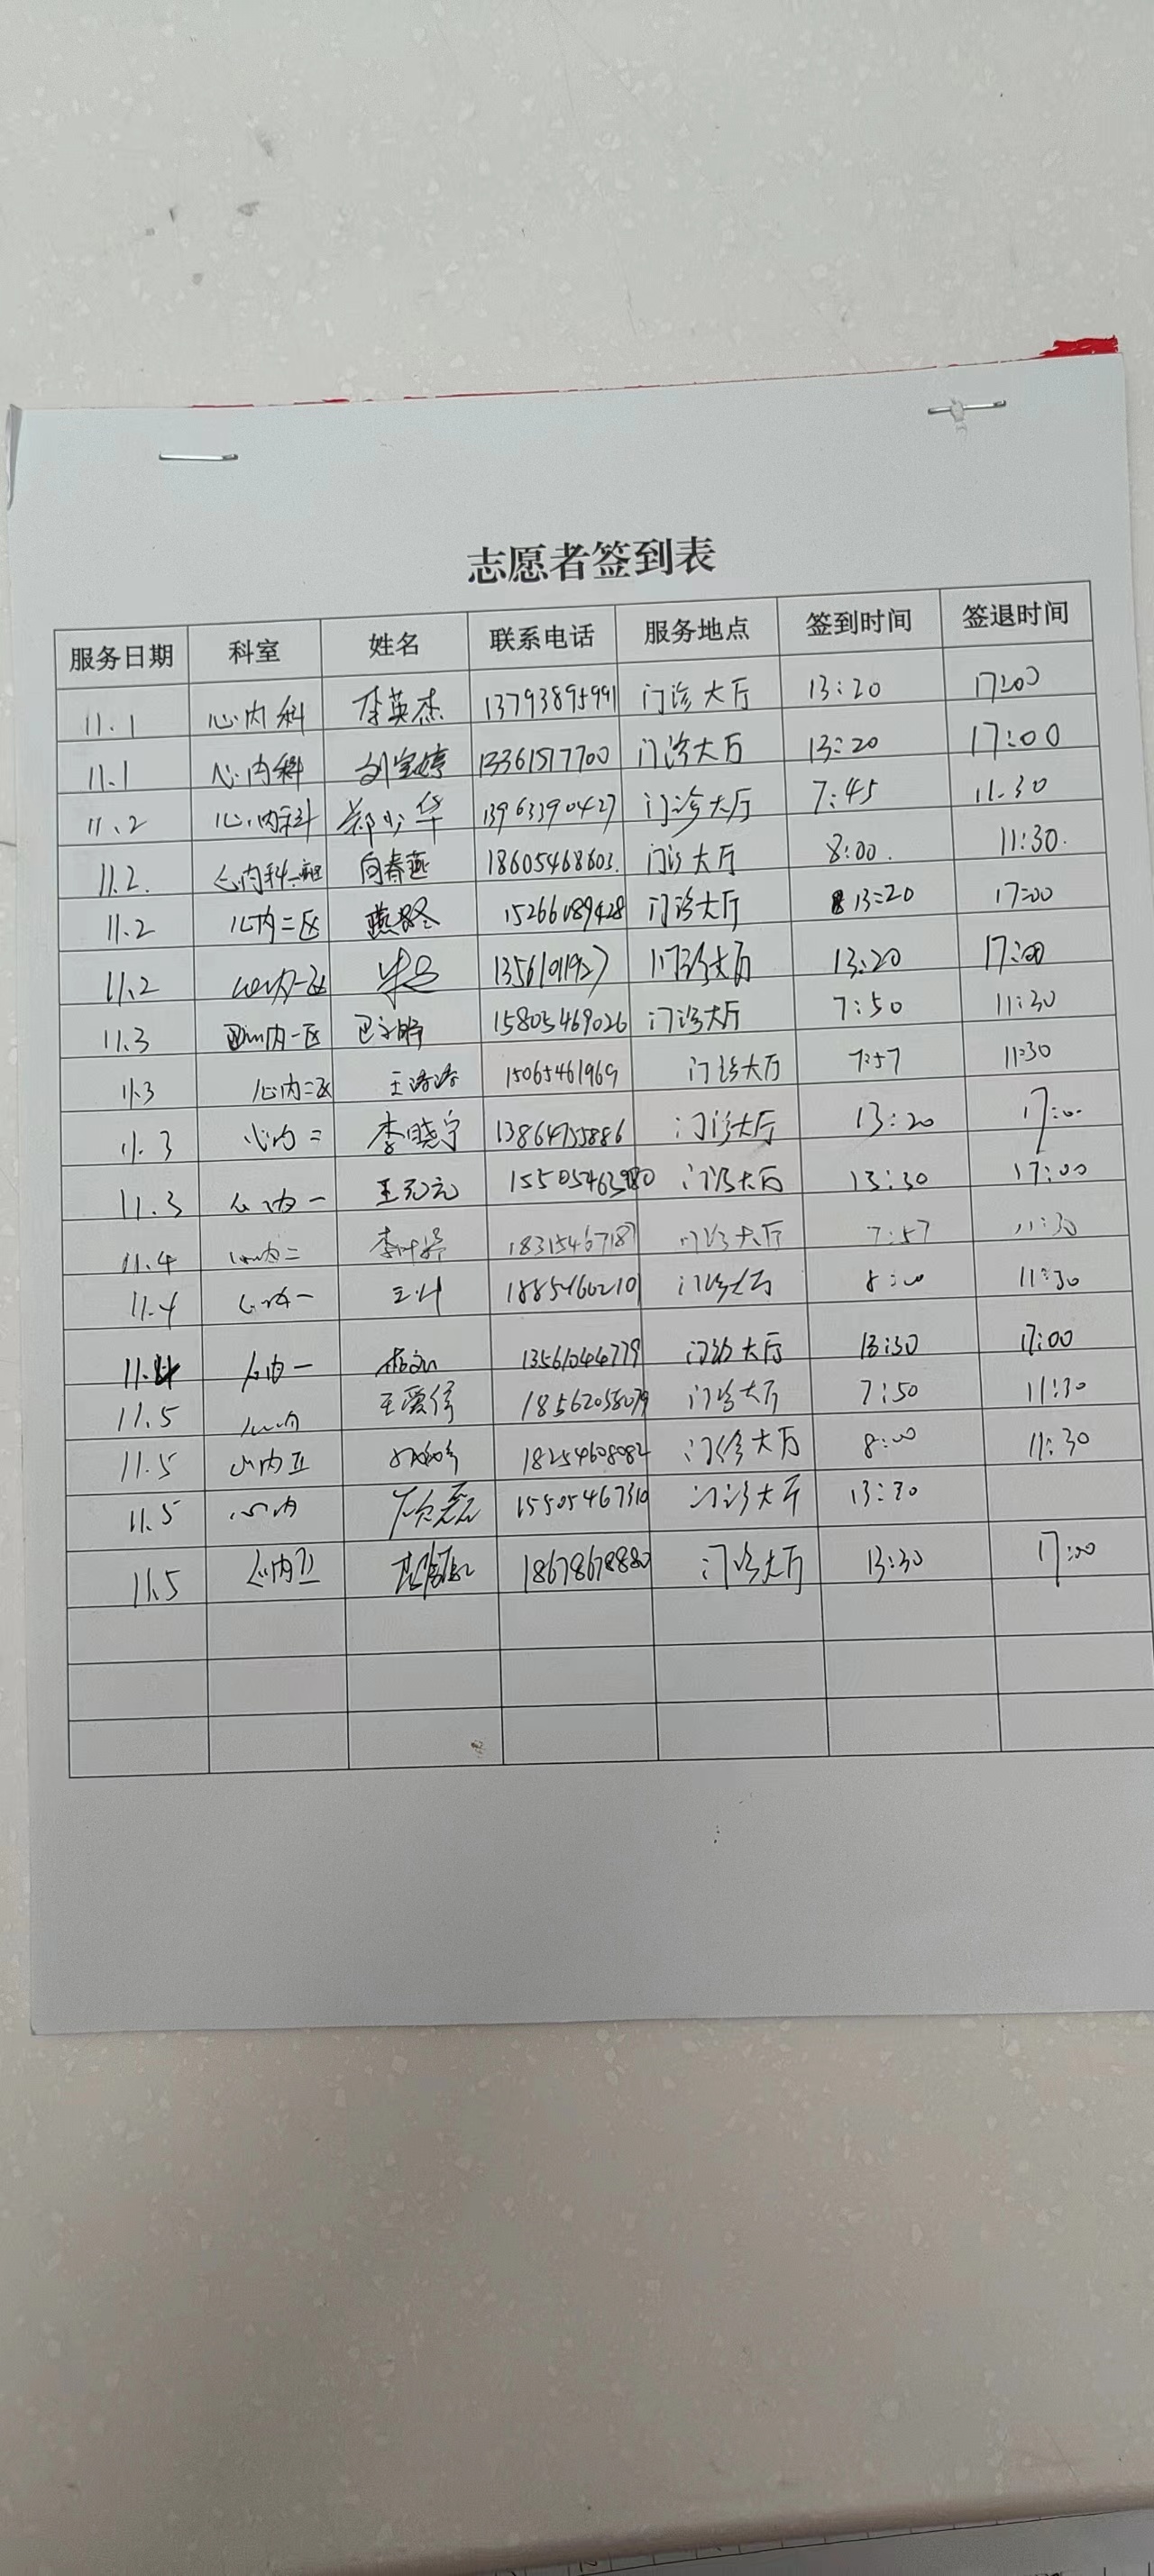 志愿者签到表
服务日期 科室 姓名 联系电话 服务地点 签到时间 签退时间
11.1 心内科 李英杰 13793895991 门诊大厅 13:20 17:00
11.1 心内科 刘宝婷 13361517700 门诊大厅 13:20 17:00
11.2 心内科 郑少华 13963390427 门诊大厅 7:45 11.30
11.2. 心内科 向春燕 18605468603. 门诊大厅 8:00. 11:30.
11.2 心内二区 15266089428 门诊大厅 13:20 17:00
11.2 13561011927 门诊大厅 13:20 17:00
11.3 心内一区 15805469026 门诊大厅 7:50 11:30
11.3 心内二区 王洛洛 15065461969 门诊大厅 7:57 11:30
11.3 心内二 李晓宁 13864755886 门诊大厅 13:20 17:00
11.3 心内一 王元元 门诊大厅 13:30 17:00
11.4 心内二 18315467187 门诊大厅 7:57 11:30
11.4 心内一 18854662101 门诊大厅 8:00 11:30
11.4 心内一 13561044779 门诊大厅 13:30 17:00
11.5 心内 18562058079 门诊大厅 7:50 11:30
11.5 心内II 18254608082 门诊大厅 8:00 11:30
11.5 心内 15505467310 门诊大厅 13:30
11.5 心内 18678678880 门诊大厅 13:30 17:00